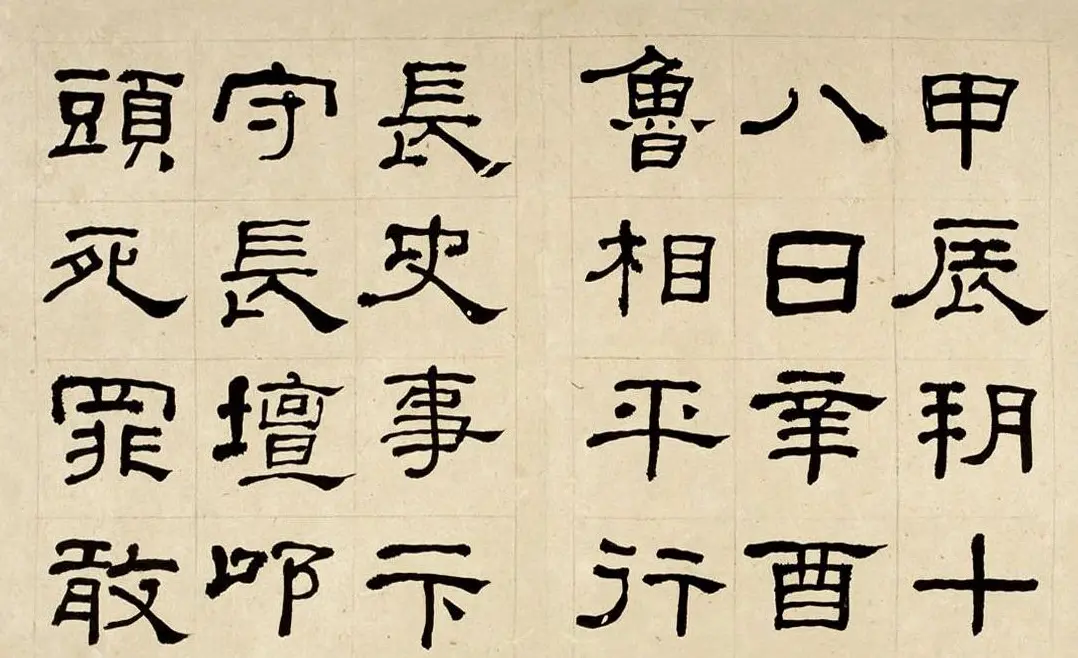 甲辰朔十
八日辛酉
魯相平行
長史事卞
守長壇叩
頭死罪敢